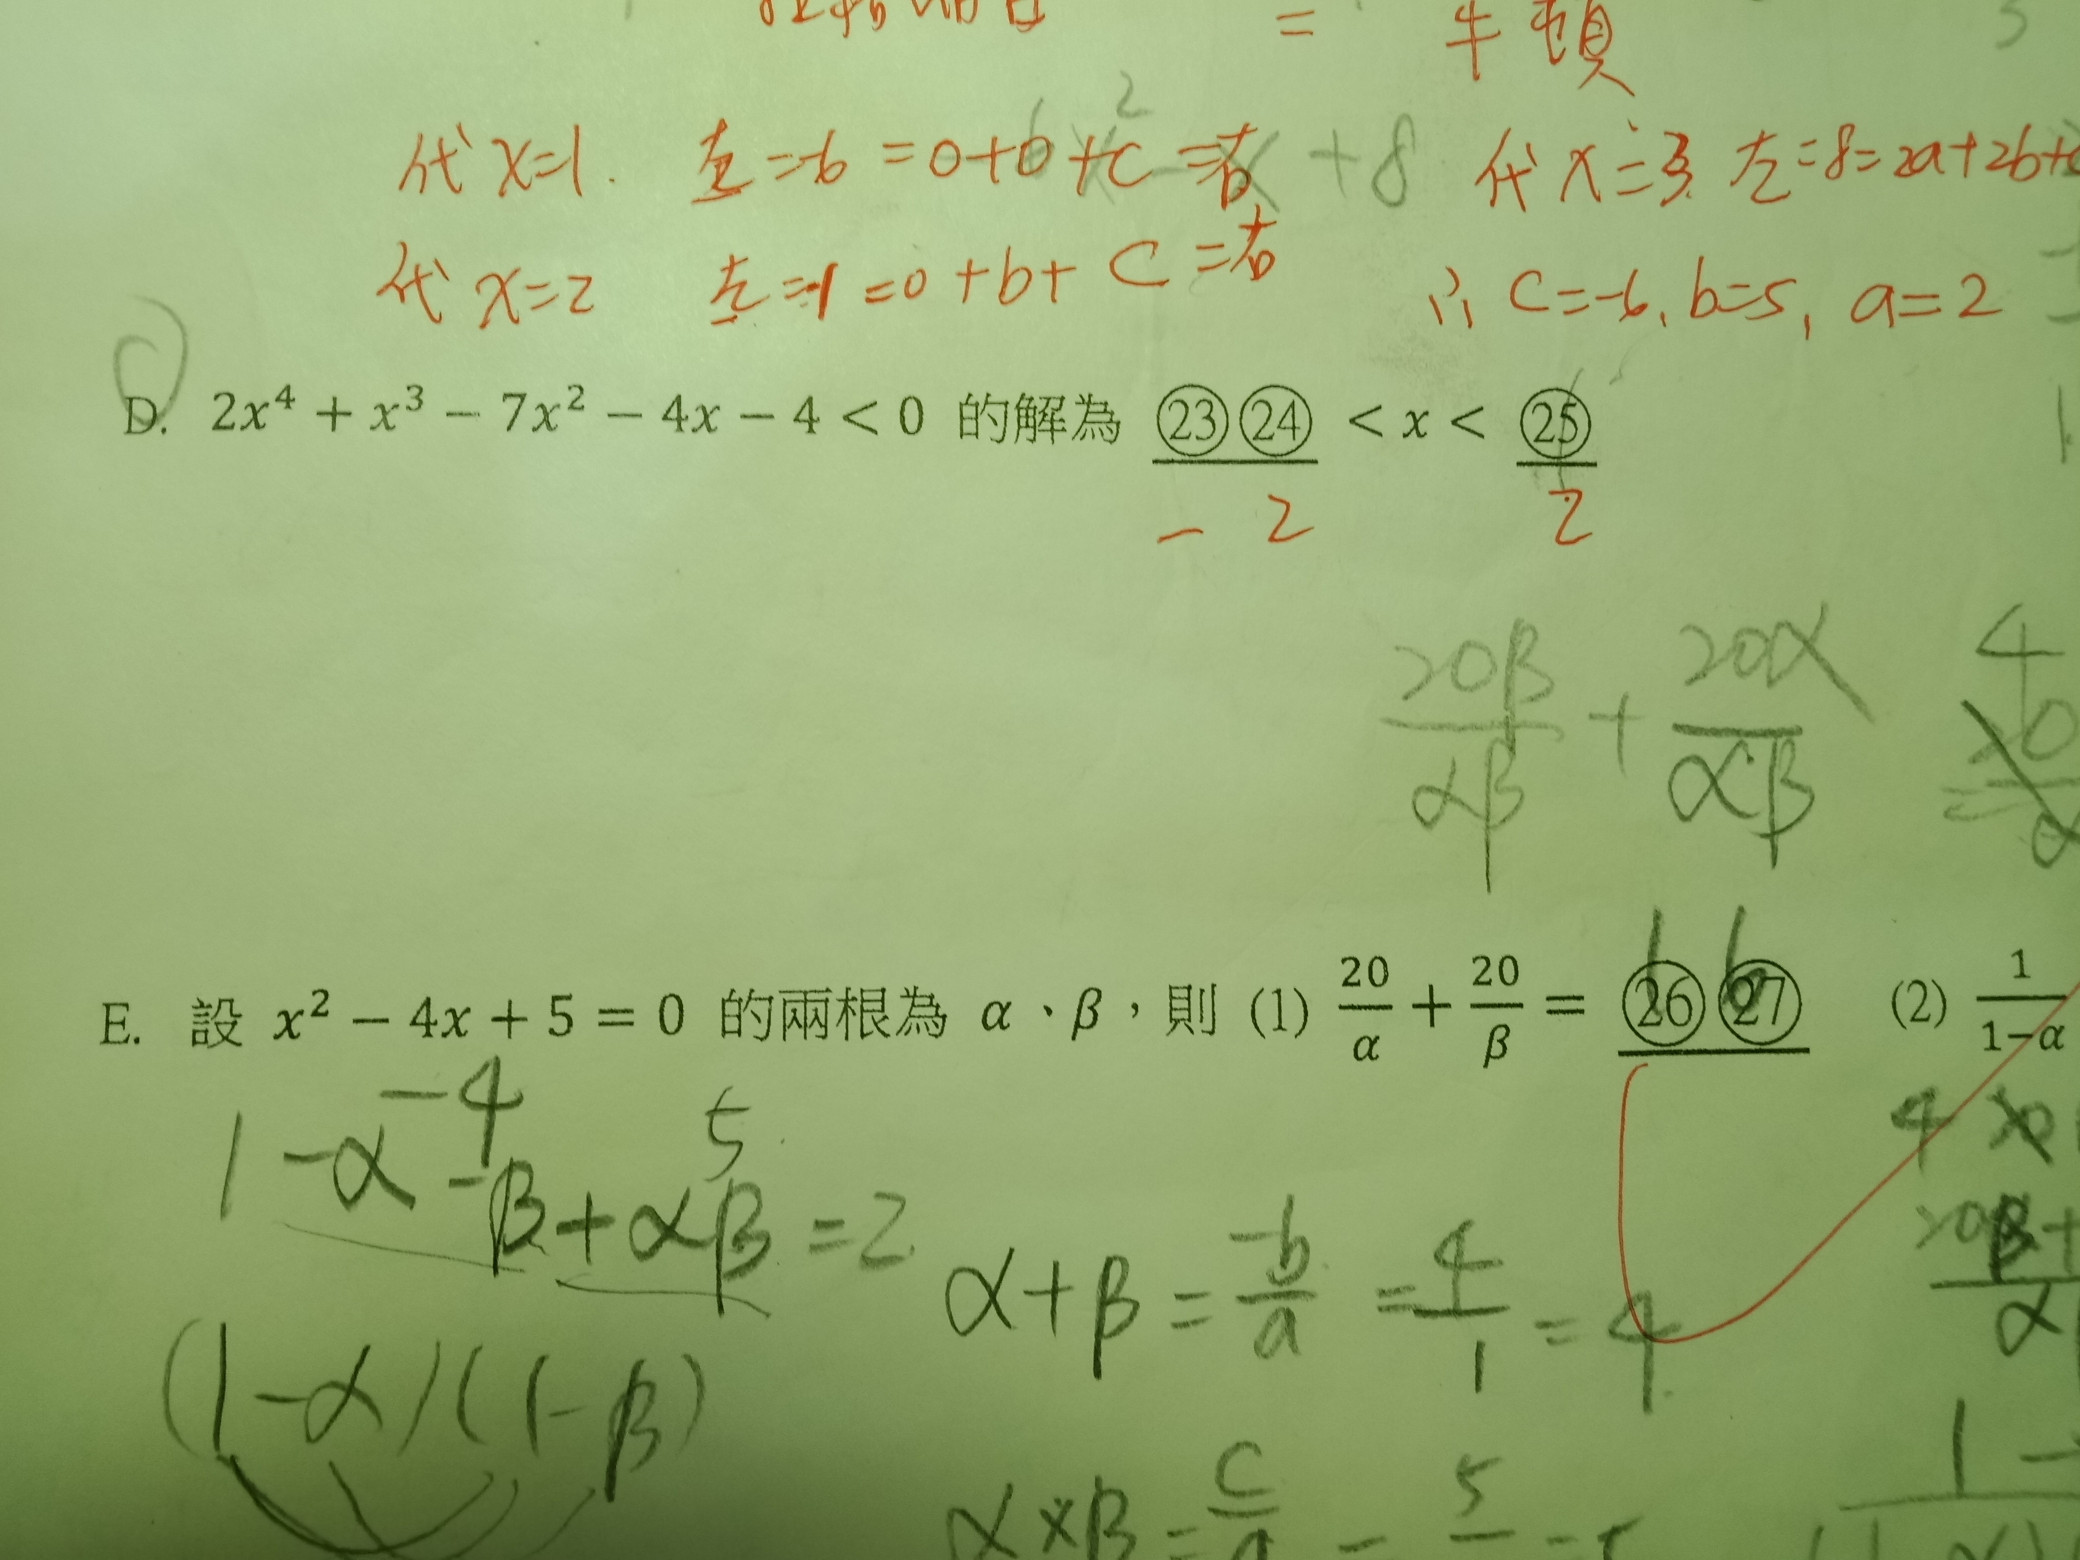 = 牛頓
代 x=1. 左=-6 = 0+0+c =右
x² - x + 8
代 x=3 左=8=2a+2b+c
代 x=2 左=-1=0+b+c=右
∴ c=-6, b=5, a=2
D. 2x⁴ + x³ − 7x² − 4x − 4 < 0 的解為 ㉓㉔ < x < ㉕
-2 2
20β/αβ + 20α/αβ =
E. 設 x² − 4x + 5 = 0 的兩根為 α、β,則 (1) 20/α + 20/β = ㉖㉗ (2) 1/1−α
1 6
-4 5
1-α-β+αβ=2
α+β = -b/a = 4/1 = 4
(1-α)(1-β)
α×β = c/a = 5